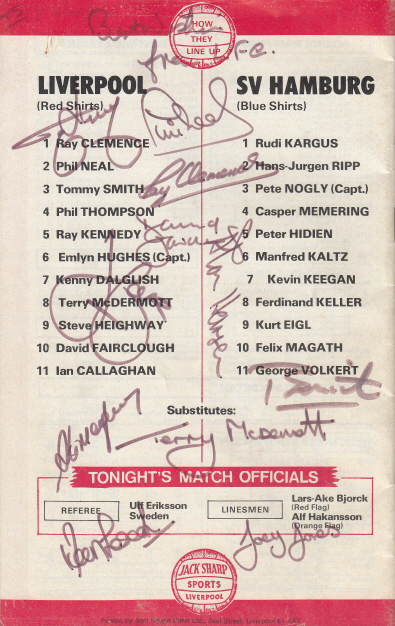 HOW
THEY
LINE UP
LIVERPOOL
(Red Shirts)
1 Ray CLEMENCE
2 Phil NEAL
3 Tommy SMITH
4 Phil THOMPSON
5 Ray KENNEDY
6 Emlyn HUGHES (Capt.)
7 Kenny DALGLISH
8 Terry McDERMOTT
9 Steve HEIGHWAY
10 David FAIRCLOUGH
11 Ian CALLAGHAN
SV HAMBURG
(Blue Shirts)
1 Rudi KARGUS
2 Hans-Jurgen RIPP
3 Pete NOGLY (Capt.)
4 Casper MEMERING
5 Peter HIDIEN
6 Manfred KALTZ
7 Kevin KEEGAN
8 Ferdinand KELLER
9 Kurt EIGL
10 Felix MAGATH
11 George VOLKERT
Ray Clemence
Substitutes:
Terry McDermott
TONIGHT'S MATCH OFFICIALS
REFEREE
Ulf Eriksson
Sweden
LINESMEN
Lars-Ake Bjorck
(Red Flag)
Alf Hakansson
(Orange Flag)
Joey Jones
JACK SHARP
SPORTS
LIVERPOOL